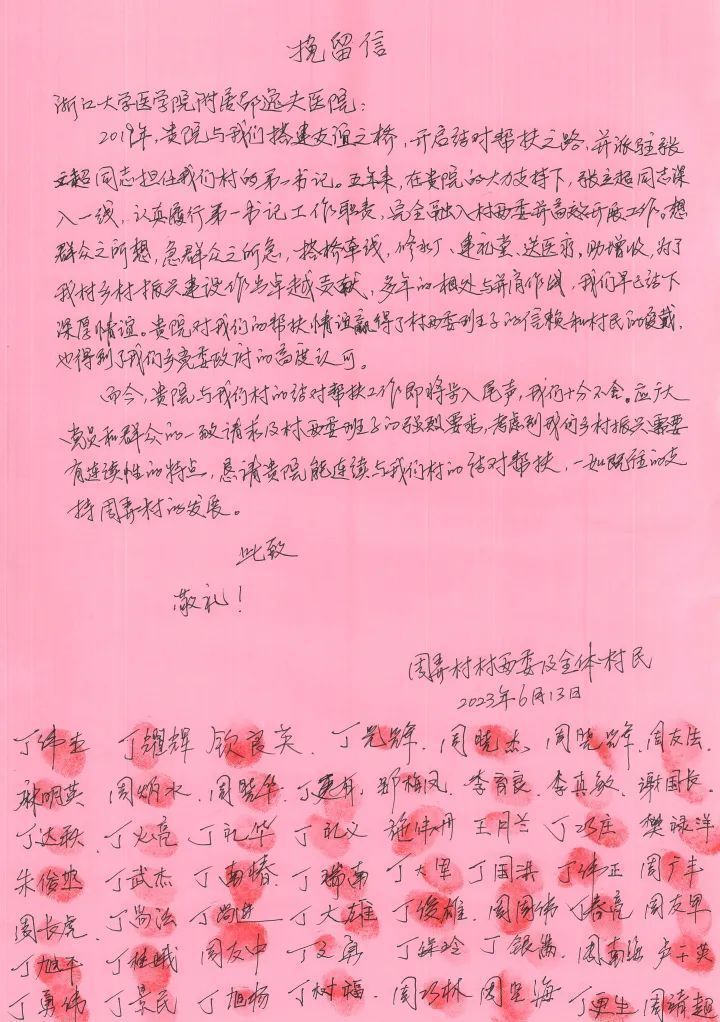 挽留信
浙江大学医学院附属邵逸夫医院：
2019年，贵院与我们搭建友谊之桥，开启结对帮扶之路，并派驻张
立超同志担任我们村的第一书记。五年来，在贵院的大力支持下，张立超同志深
入一线，认真履行第一书记工作职责，完全融入村两委并高效开展工作。想
群众之所想，急群众之所急，搭桥车线，修水厂、建礼堂、送医疗，助增收，为了
我村乡村振兴建设作出卓越贡献，多年的相处与并肩作战，我们早已结下
深厚情谊。贵院对我们的帮扶情谊赢得了村两委班子的信赖和村民的爱戴，
也得到了我们乡党委政府的高度认可。
而今，贵院与我们村的结对帮扶工作即将步入尾声，我们十分不舍。应广大
党员和群众的一致请求及村两委班子的强烈要求，考虑到我们乡村振兴需要
有连续性的特点，恳请贵院能连续与我们村的结对帮扶，一如既往的支
持周弄村的发展。
此致
敬礼！
周弄村村两委及全体村民
2023年6月13日
丁伟主 丁耀辉 钦良英 丁光辉 周晓杰 周晓辉 周友法
耿明英 周炳水 周晓华 丁更开 邹梅凤 李育良 李真敏 谢国长
丁达秋 丁火亮 丁礼华 丁礼义 施伟册 王月兰 丁巧庄 樊禄洋
朱俊旭 丁武杰 丁南椿 丁瑞南 丁大军 丁国洪 丁伟正 周广丰
周长虎 丁尚法 丁尚进 丁大雄 丁俊雄 周国伟 丁春亮 周友军
丁旭平 丁桂娥 周友中 丁文勇 丁银满 周南海
丁勇伟 丁景民 丁旭杨 丁树福 周巧林 周坚海 丁更生 周靖超